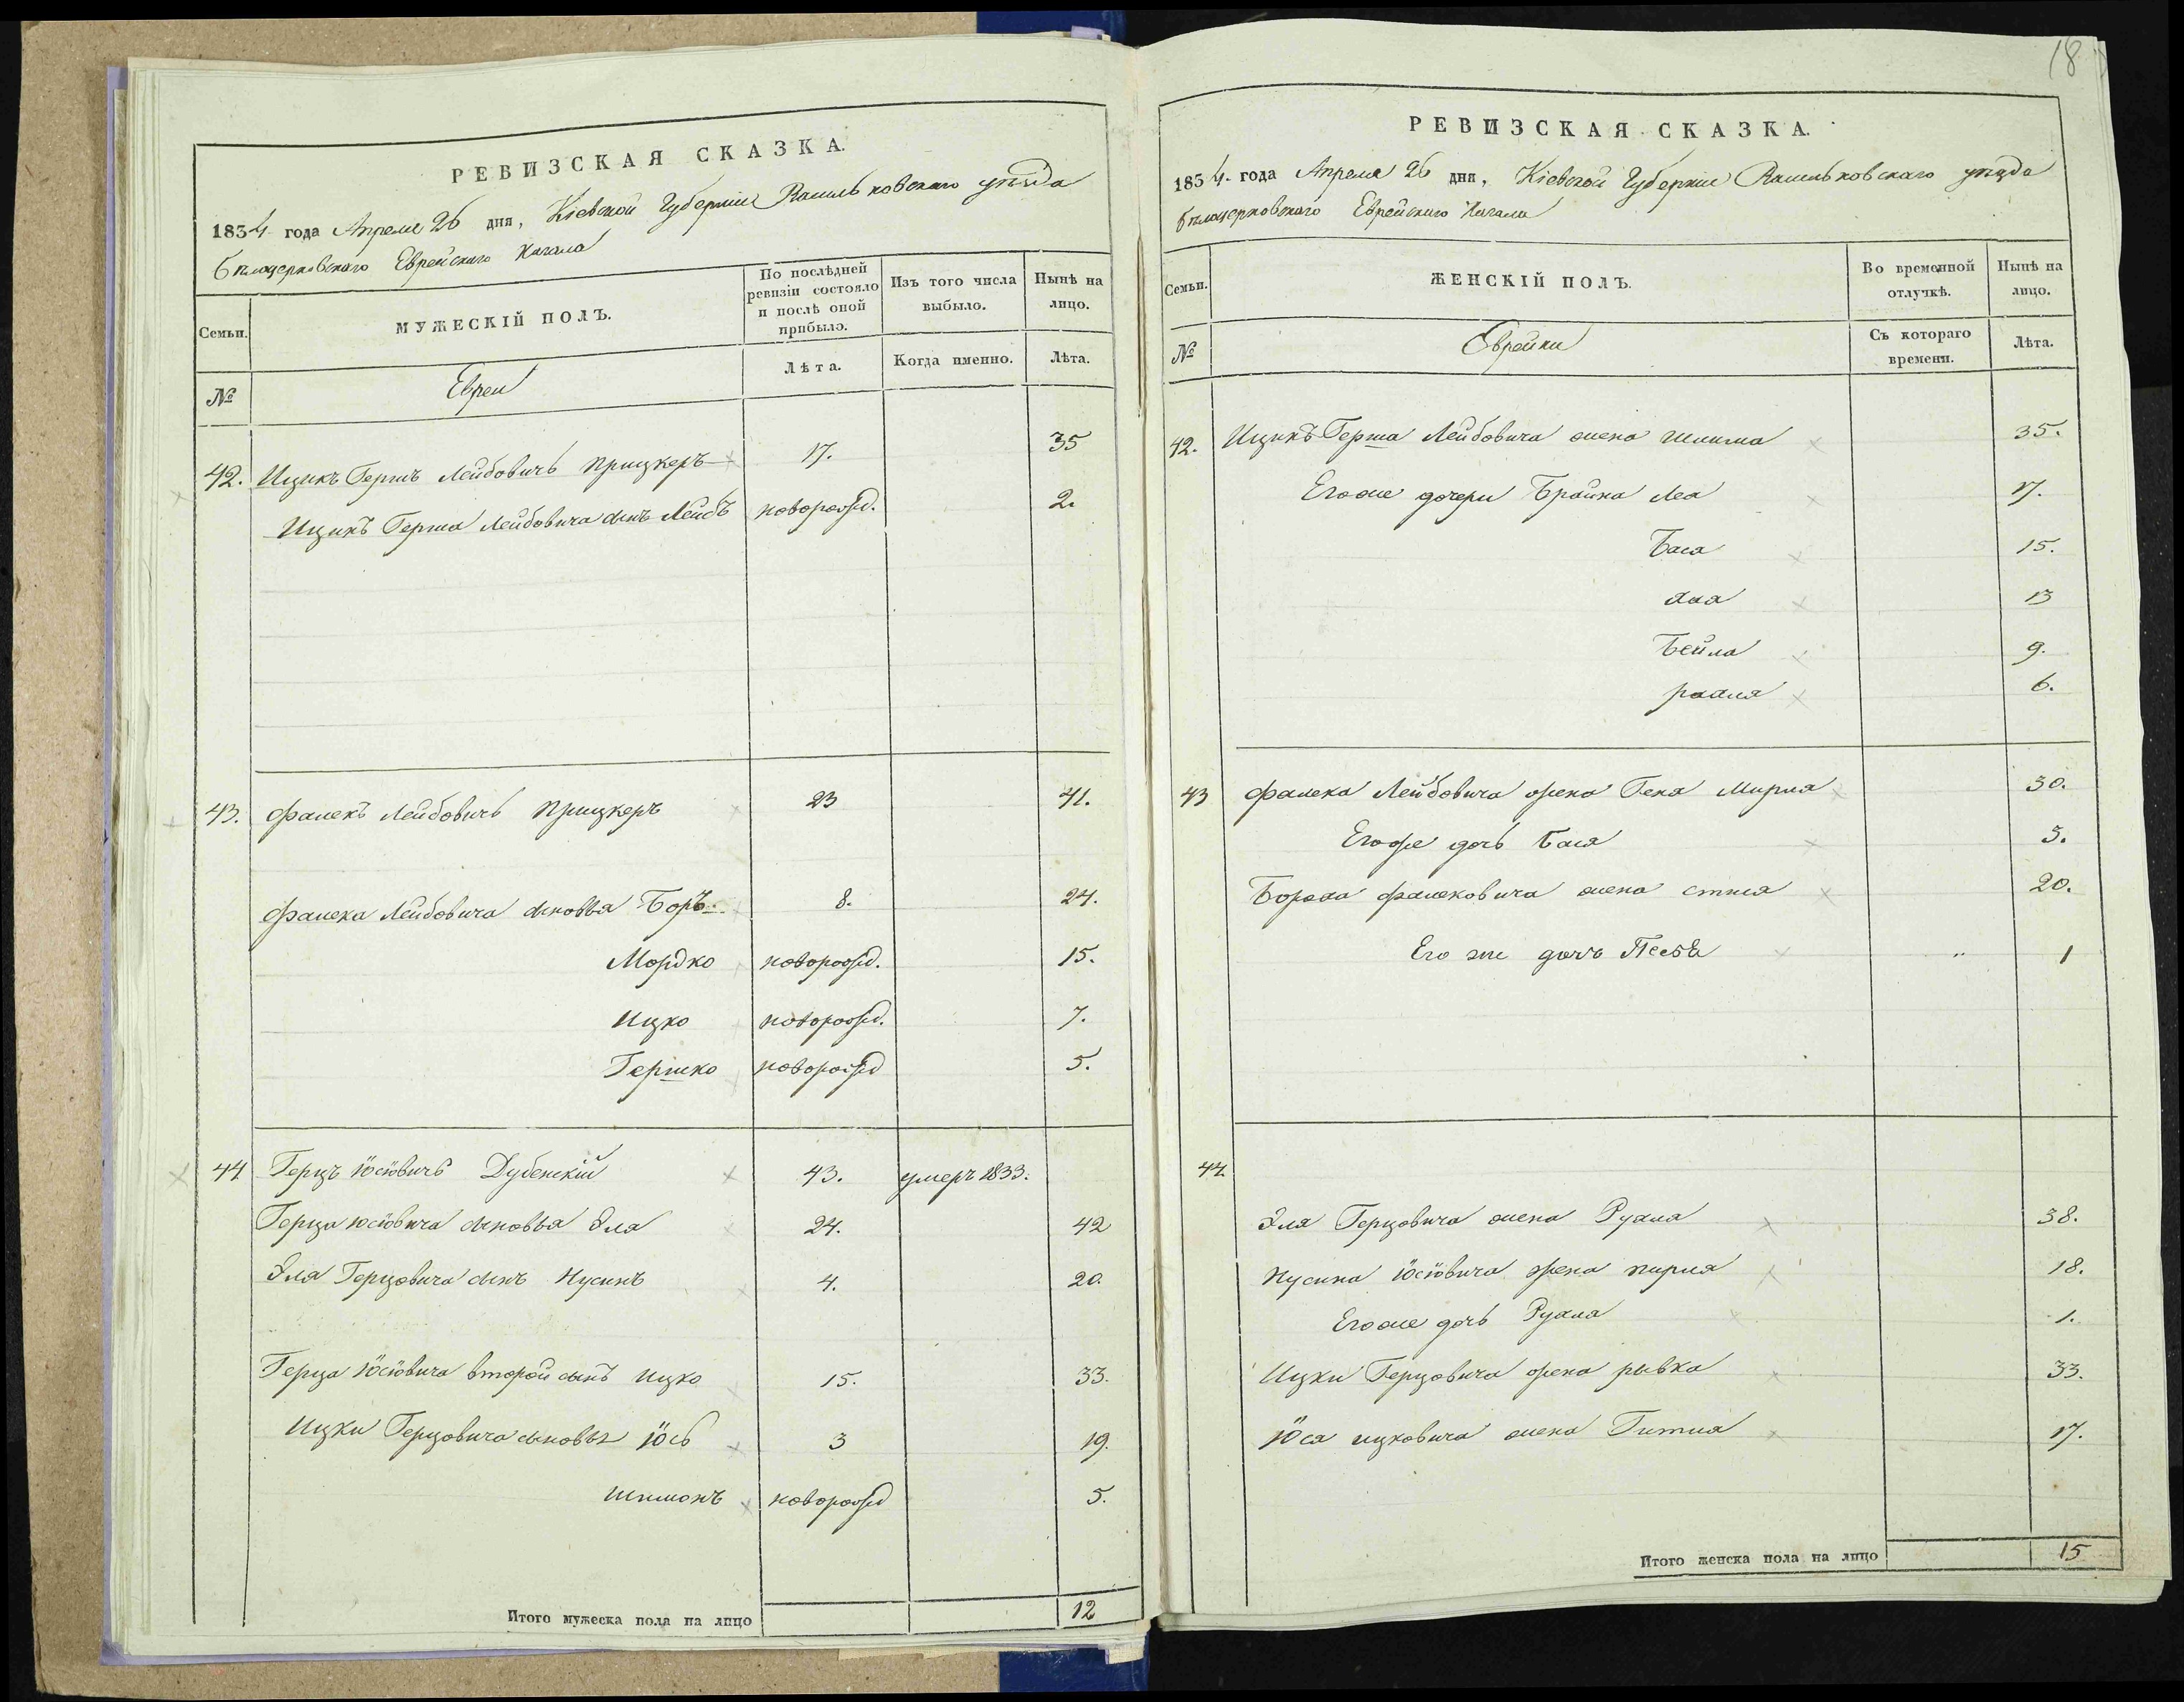 РЕВИЗСКАЯ СКАЗКА.
1834 года Апреля 26 дня, Кіевской Губерніи Васильковскаго уѣзда
Бѣлоцерковскаго Еврейскаго Кагала
Семьи. МУЖЕСКІЙ ПОЛЪ. По послѣдней ревизіи состояло и послѣ оной прибыло. Изъ того числа выбыло. Нынѣ на лицо.
№ Евреи Лѣта. Когда именно. Лѣта.
42. Ицикъ Гершъ Лейбовичъ Прицкеръ 17. 35
Ицикъ Герша Лейбовича сынъ Лейбъ новорожд. 2.
43. Фалекъ Лейбовичъ Прицкеръ 23 41.
Фалека Лейбовича сыновья Боръ. 8. 24.
Мордко новорожд. 15.
Ицко новорожд. 7.
Гершко новорожд 5.
44 Герцъ Іосіовичъ Дубенскій 43. умеръ 1833.
Герца Іосіовича сыновья Эля 24. 42
Эля Герцовича сынъ Нусинъ 4. 20.
Герца Іосіовича второй сынъ Ицко 15. 33.
Ицки Герцовича сыновья Іось 3 19.
Шимонъ новорожд 5.
Итого мужеска пола на лицо 12
18
РЕВИЗСКАЯ СКАЗКА.
1834 года Апреля 26 дня, Кіевской Губерніи Васильковскаго уѣзда
Бѣлоцерковскаго Еврейскаго Кагала
Семьи. ЖЕНСКІЙ ПОЛЪ. Во временной отлучкѣ. Нынѣ на лицо.
№ Еврейки Съ котораго времени. Лѣта.
42. Ицикъ Герша Лейбовича жена 35.
Егоже дочери Брайна Леа 17.
Бася 15.
Хая 13
Бейла 9.
6.
43 Фалека Лейбовича жена Гена Мирля 30.
Егоже дочь Бася 3.
Фалековича жена 20.
Его же дочь Песя " 1
44.
Эля Герцовича жена Рухля 38.
Нусина Іосіовича жена Пирля 18.
Егоже дочь Рухля 1.
Ицки Герцовича жена Рывка 33.
Іося Ицковича жена Гитля 17.
Итого женска пола на лицо 15